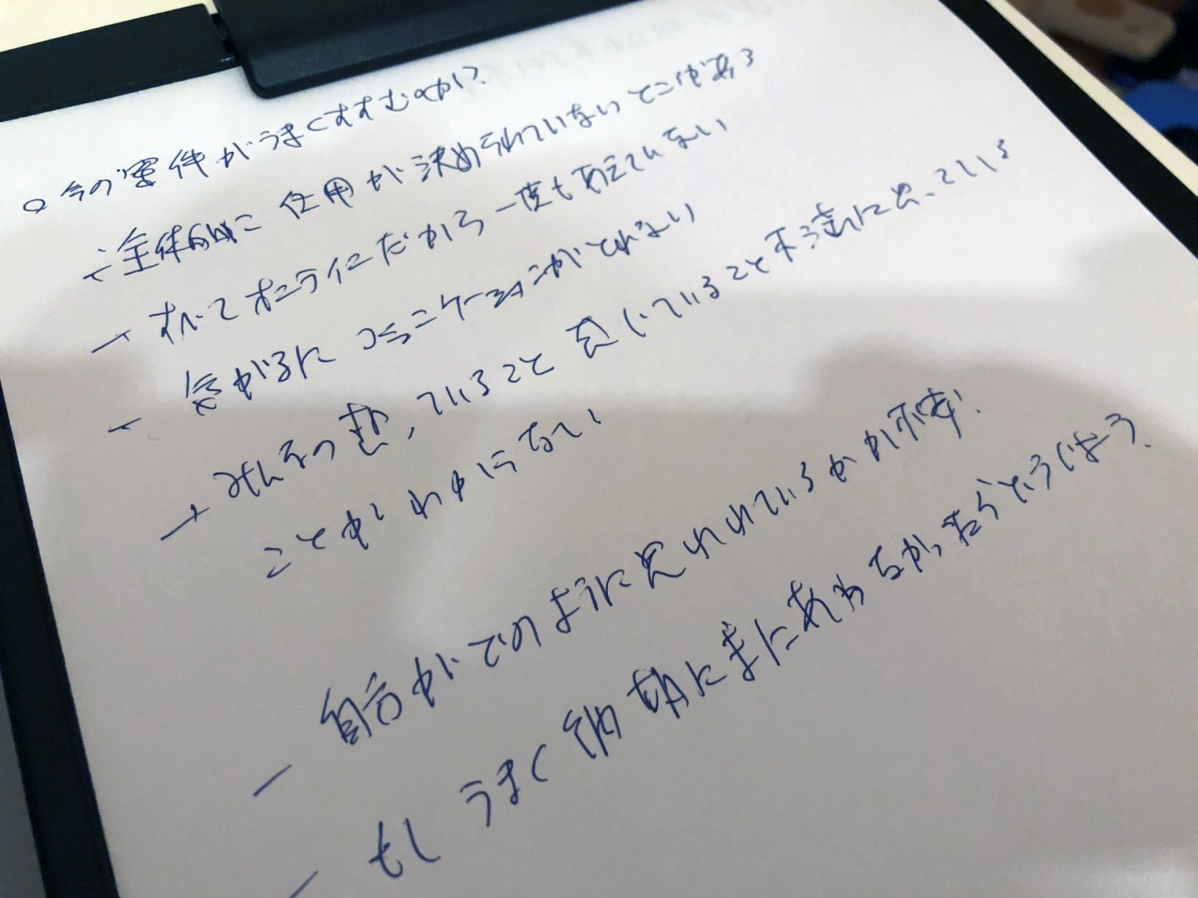 ○ 今の要件がうまくすすむのか?
→ 全体的に仕用が決められていないとこがある
→ すべてオンラインだから一度もあえていない
- 気がるにコミニケーションがとれない
→ みんなの思っていること 感じていること 不満に思っている
ことがわからない
- 自分がどのように見られているかが不安.
- もしうまく納期にまにあわなかったらどうしよう.